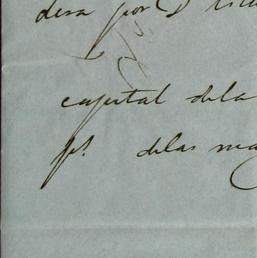 dera por D
capital dela
pr. delas